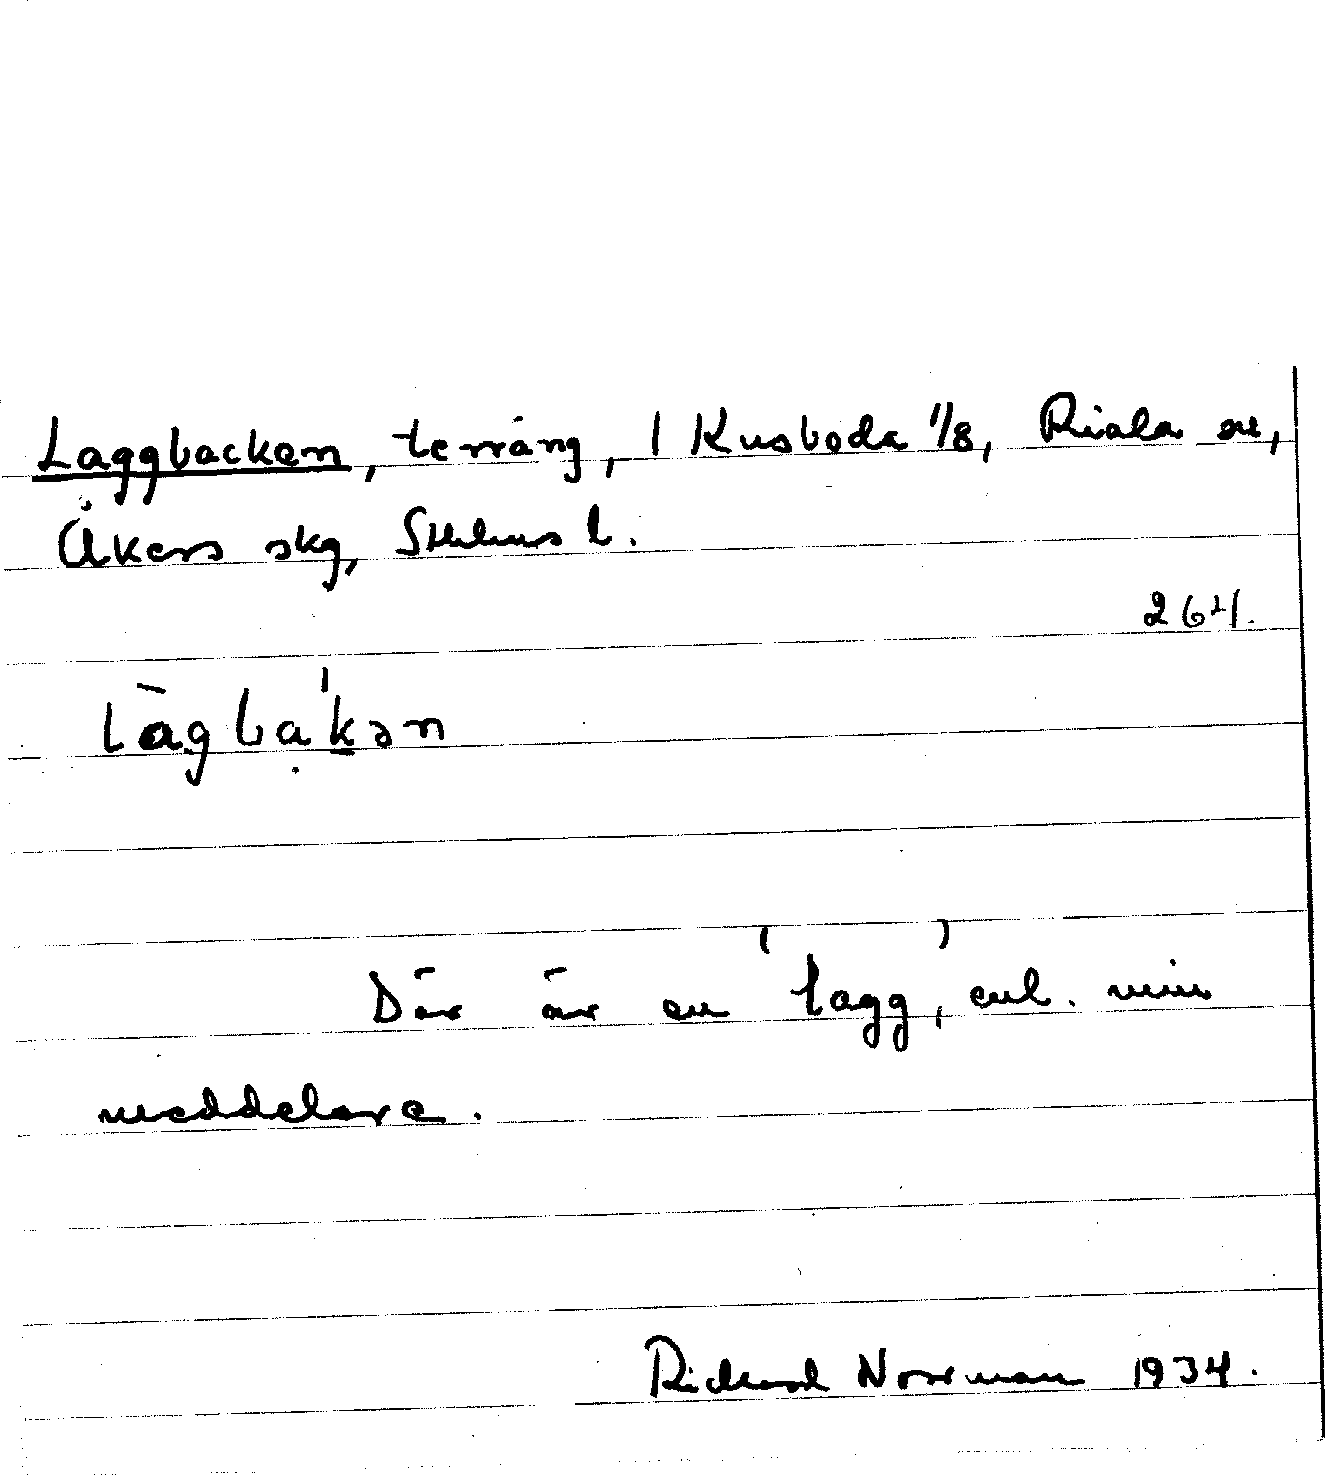 Laggbacken, terräng, l Kusboda 1/8, Riala sn,
Åkers skg, Sthlms l.
264.
làgba'kən
Där är en 'lagg', enl. min
meddelare.
Rickard Norrman 1934.